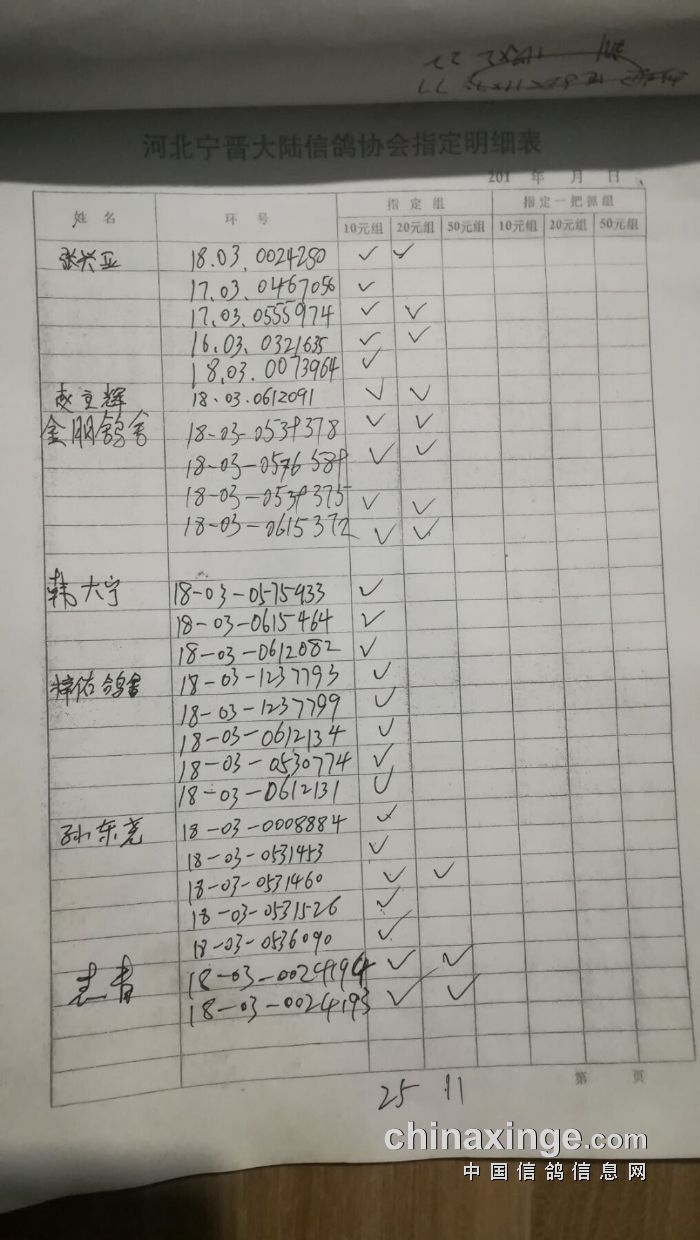 河北宁晋大陆信鸽协会指定明细表
201 年 月 日
姓 名 环 号 指 定 组 指定一把抓组
10元组 20元组 50元组 10元组 20元组 50元组
张兴亚 18.03.0024280 ✓ ✓
17.03.0467056 ✓
17.03.0555974 ✓ ✓
16.03.0321635 ✓ ✓
18.03.0073964 ✓
赵立辉 18.03.0612091 ✓ ✓
金朋鸽舍 18-03-0539378 ✓ ✓
18-03-0576589 ✓ ✓
18-03-0539375 ✓ ✓
18-03-0615372 ✓ ✓
韩大宁 18-03-0575933 ✓
18-03-0615464 ✓
18-03-0612082 ✓
梓佑鸽舍 18-03-1237793 ✓
18-03-1237799 ✓
18-03-0612134 ✓
18-03-0530774 ✓
18-03-0612131 ✓
孙东尧 18-03-0008884 ✓
18-03-0531453 ✓
18-03-0531460 ✓ ✓
18-03-0531526 ✓
18-03-0536090 ✓
18-03-0024194 ✓ ✓
18-03-0024193 ✓ ✓
第 页
25 11
chinaxinge.com
中国信鸽信息网